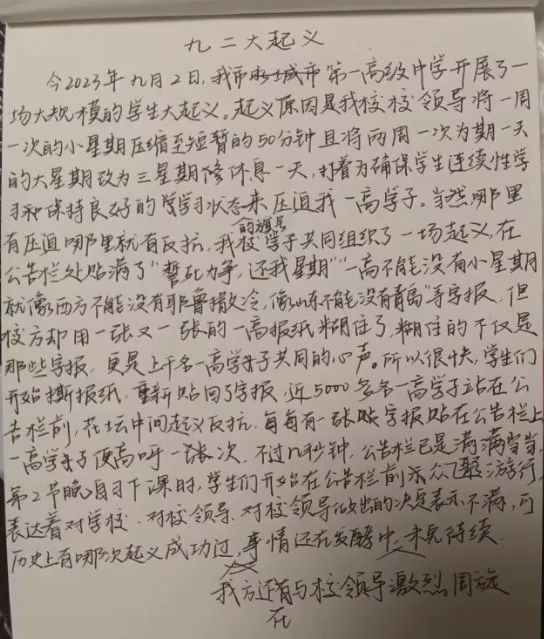 九二大起义
今2023年九月2日，我市城市第一高级中学开展了一
场大规模的学生大起义，起义原因是我校校领导将一周
一次的小星期压缩至短暂的50分钟且将两周一次为期一天
的大星期改为三星期修休息一天，打着为确保学生连续性学
习和保持良好的学习状态来压迫我一高学子。当然哪里
的旗号
有压迫哪里就有反抗，我校学子共同组织了一场起义，在
公告栏处贴满了"誓死力争，还我星期""一高不能没有小星期
就像西方不能没有耶鲁撒冷，像山东不能没有青岛"等字报，但
校方却用一张又一张的一高报纸糊住了，糊住的不仅是
那些字报，更是上千名一高学子共同的心声。所以很快，学生们
开始撕报纸，重新贴回了字报，近5000多名一高学子站在公
告栏前，花坛中间起义反抗，每每有一张字报贴在公告栏上
一高学子便高呼一张次，不过几秒钟，公告栏已是满满当当，
第2节晚自习下课时，学生们开始在公告栏前示众游行，
表达着对学校，对校领导，对校领导做出的决定表示不满，可
历史上有哪次起义成功过，事情还在发酵中，未完待续
我方还有与校领导激烈周旋
在